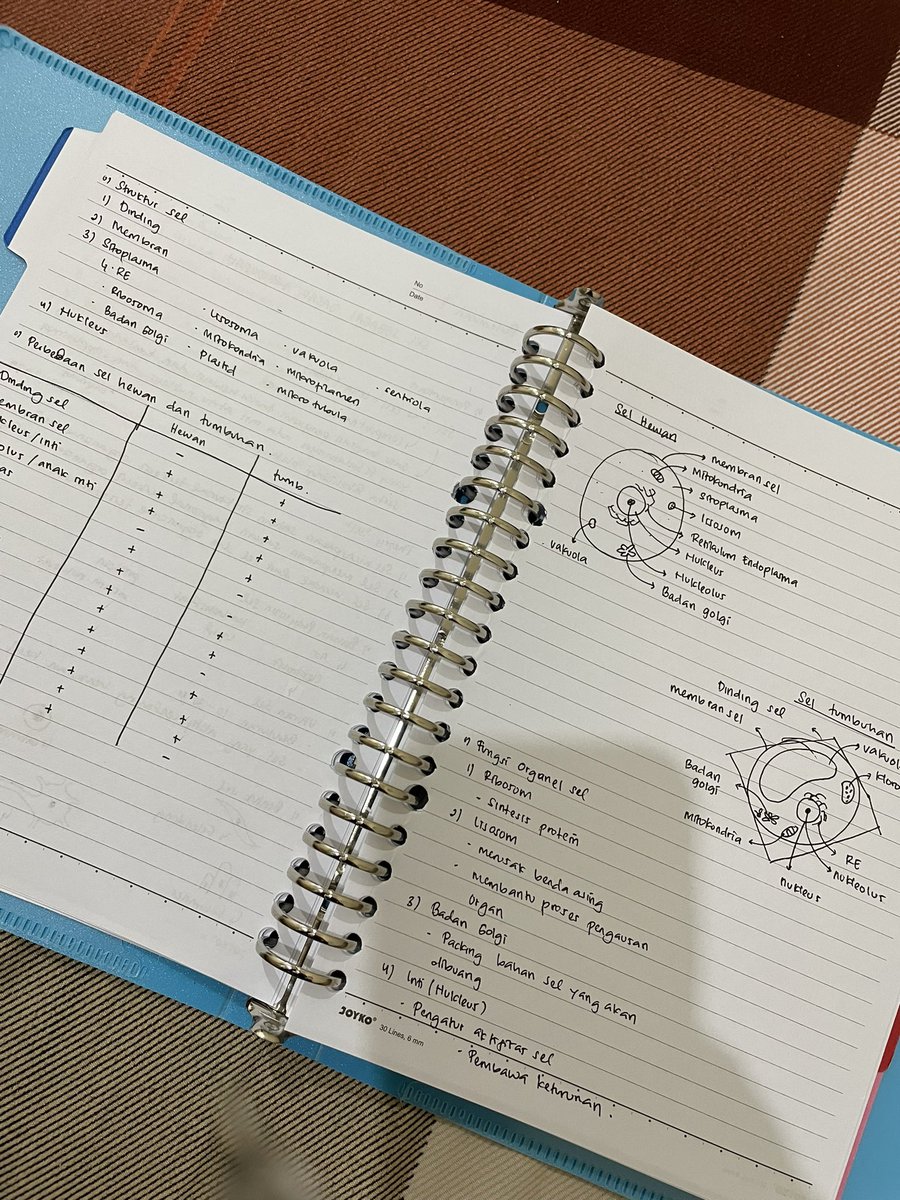 No
Date
o) Struktur sel
1) Dinding
2) Membran
3) Sitoplasma
4. RE
- Ribosoma · Lisosoma · vakuola · sentriola
- Badan Golgi · Mitokondria · mikrofilamen
· Plastid · mikro tubula
4) Nukleus
o) Perbedaan sel hewan dan tumbuhan.
Hewan tumb.
Dinding sel - +
embran sel + +
cleus/inti + +
olus/anak inti + +
as - +
+ -
+ +
+ +
+ -
+ +
+ +
+ +
+ -
Sel Hewan
membran sel
Mitokondria
sitoplasma
lisosom
Retikulum Endoplasma
Nukleus
Nukleolus
Badan golgi
vakuola
Sel tumbuhan
Dinding sel
membran sel
vakuol
kloro
Badan
golgi
mitokondria
RE
nukleolus
nukleus
o) Fungsi organel sel
1) Ribosom
- sintesis protein
2) Lisosom
- merusak benda asing
- membantu proses pengausan
organ
3) Badan Golgi
- Packing bahan sel yang akan
dibuang
4) Inti (Nukleus)
- Pengatur aktifitas sel
- Pembawa keturunan :
JOYKO
30 Lines, 6 mm